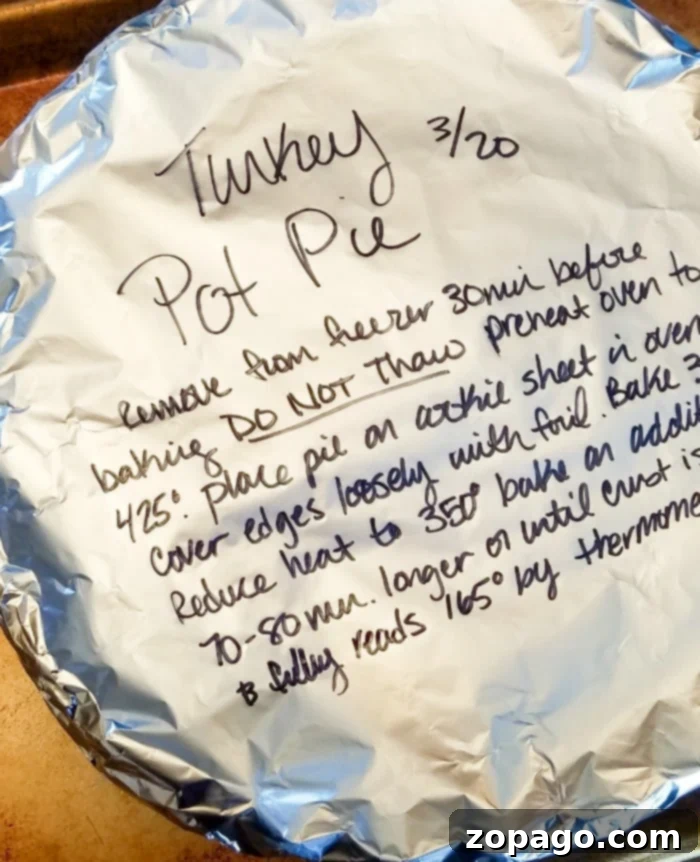 Turkey 3/20
Pot Pie
Remove from freezer 30min before
baking DO NOT Thaw preheat oven to
425°. Place pie on cookie sheet in oven
cover edges loosely with foil. Bake 3
Reduce heat to 350° bake an addit
70-80 min. longer or until crust is
& filling reads 165° by thermome
zopago.com